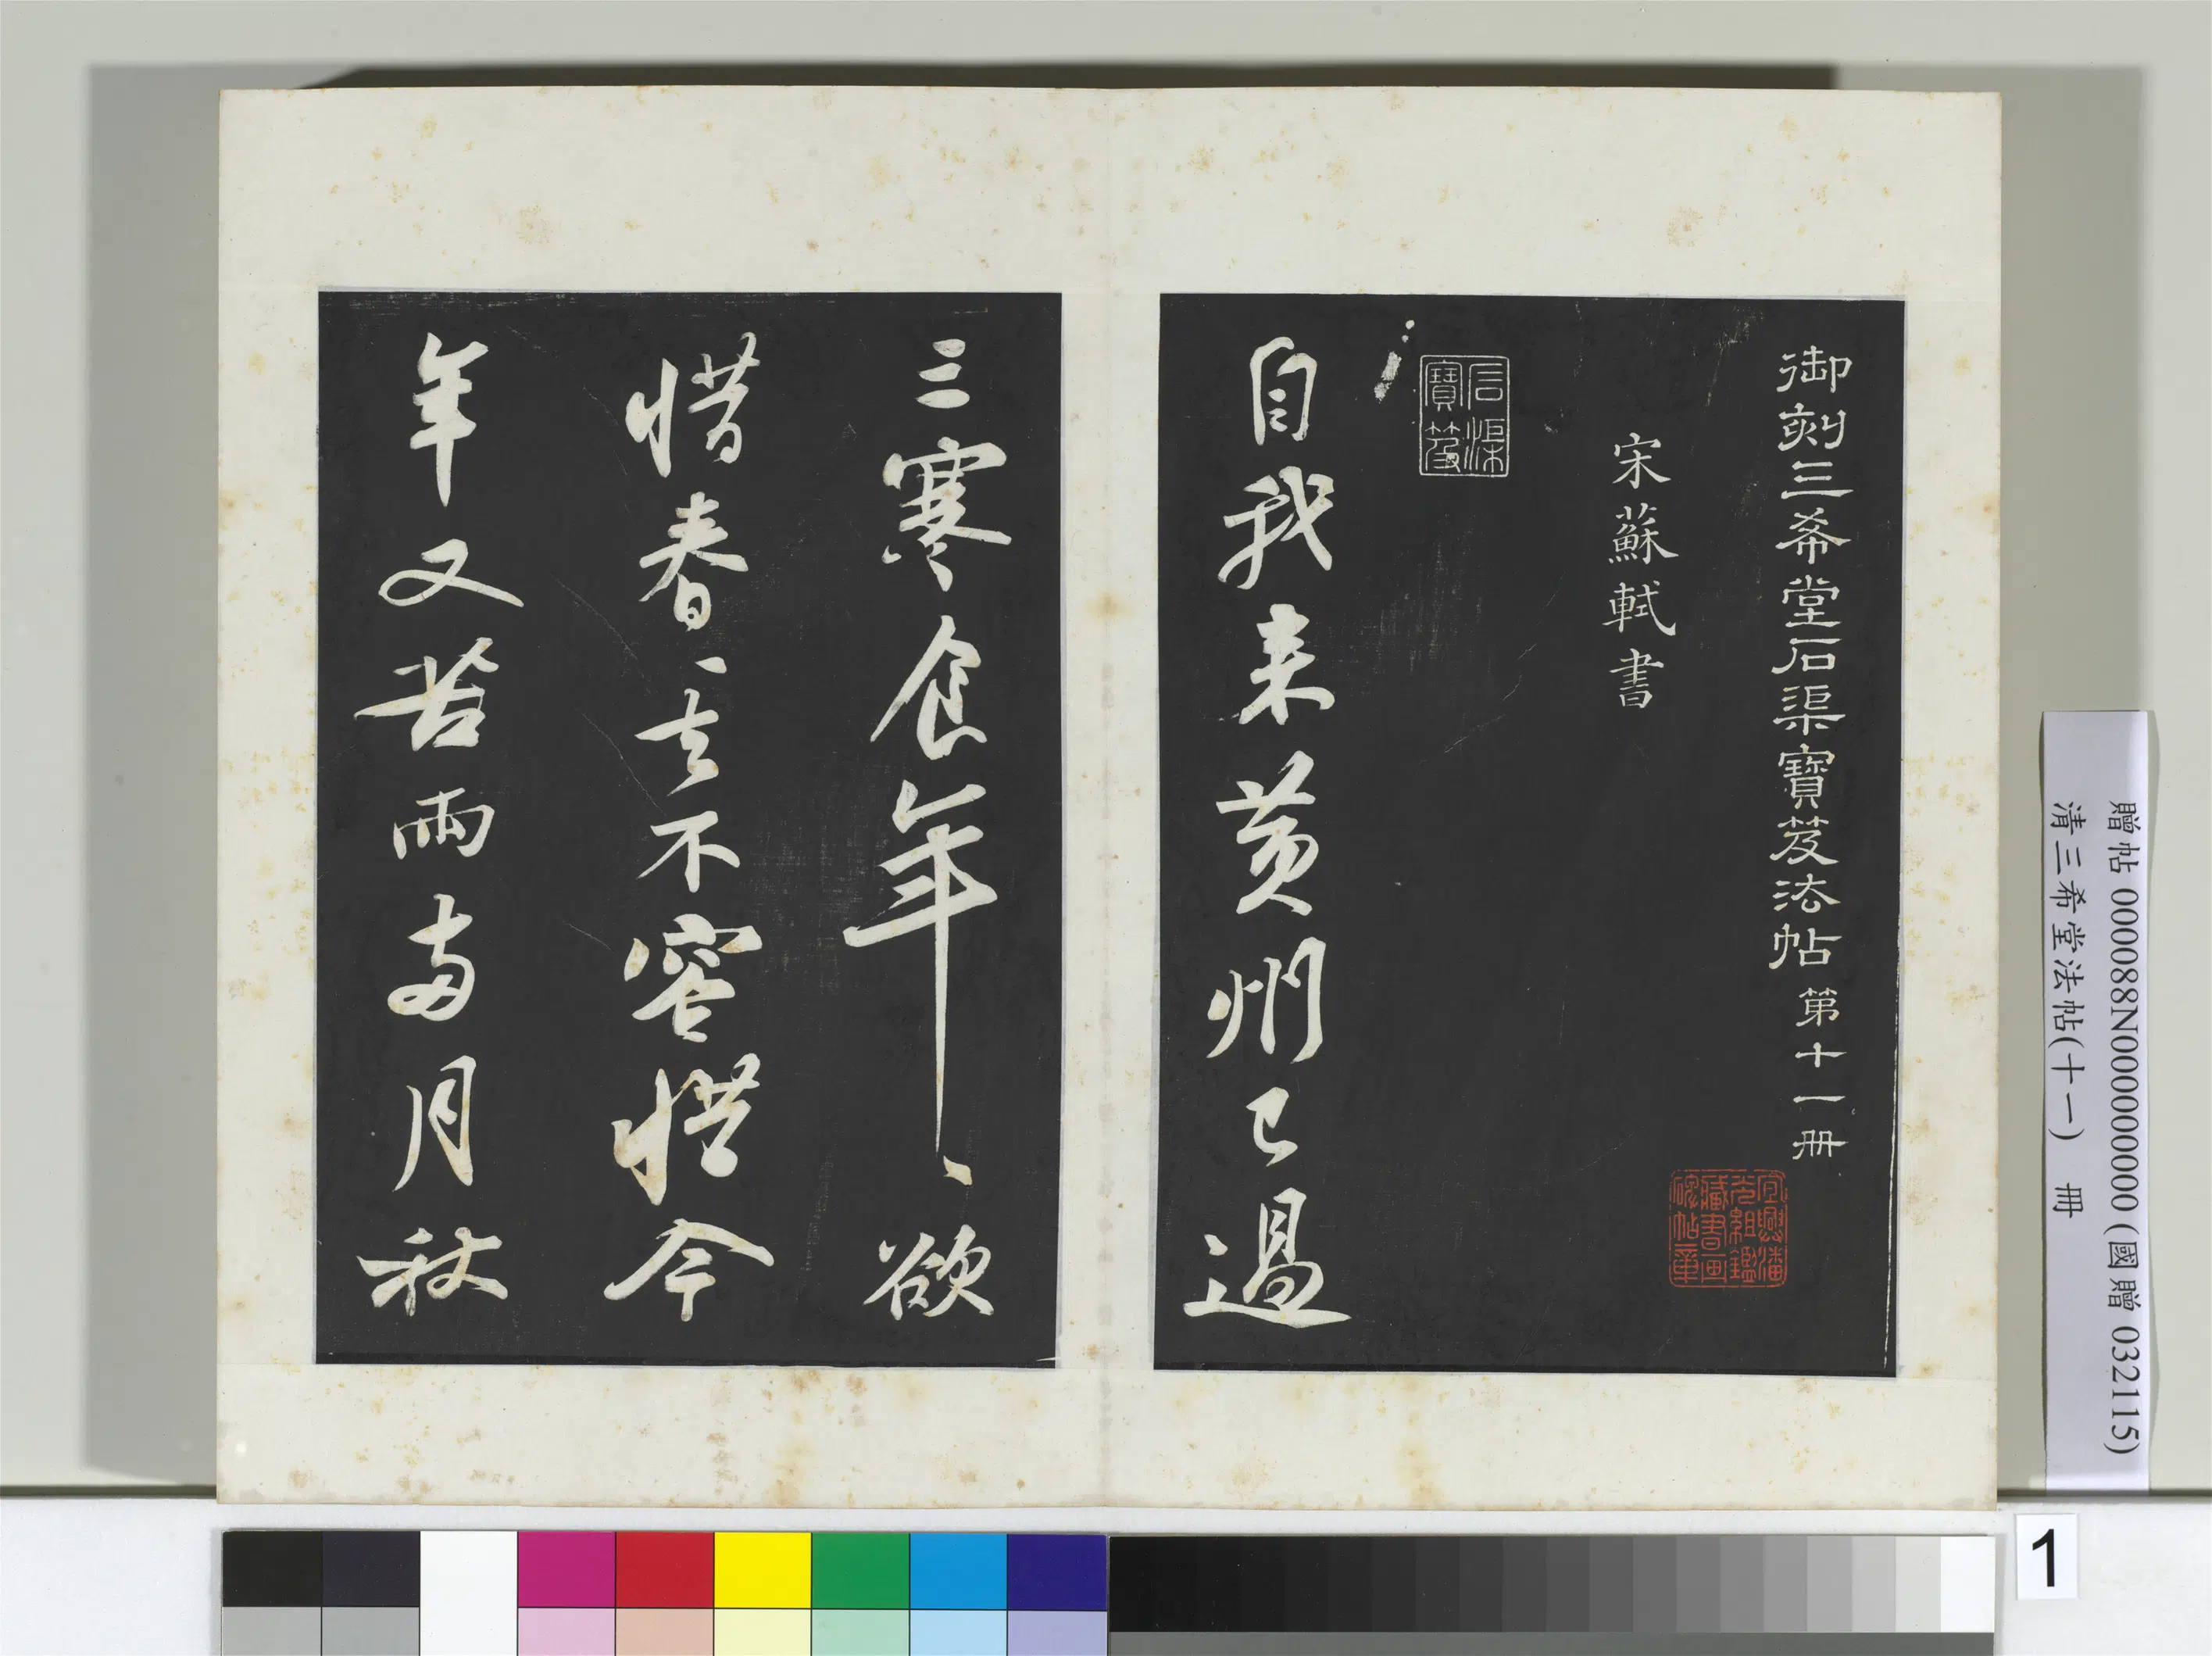 御刻三希堂石渠寶笈法帖第十一冊
宋蘇軾書
石渠寶笈
自我来黄州已過
三寒食年〻欲
惜春〻去不容惜今
年又苦雨兩月秋
宜興潘元組鑑藏書画碑帖章
贈帖 000088N000000000 (國贈 032115)
清三希堂法帖(十一) 冊
1